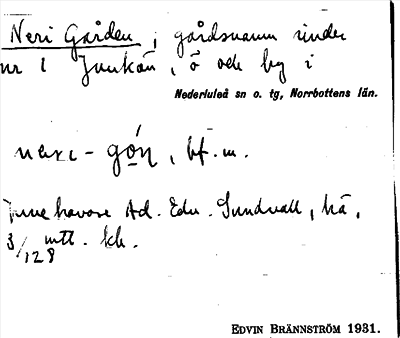 Neri Gården, gårdsnamn under
nr 1 Junkön, ö och by i
Nederluleå sn o. tg, Norrbottens län.
neri-gó̠n, bf. m.
Innehavare Ad. Edv. Sundvall, hä,
3/128 mtl. kh.
EDVIN BRÄNNSTRÖM 1931.